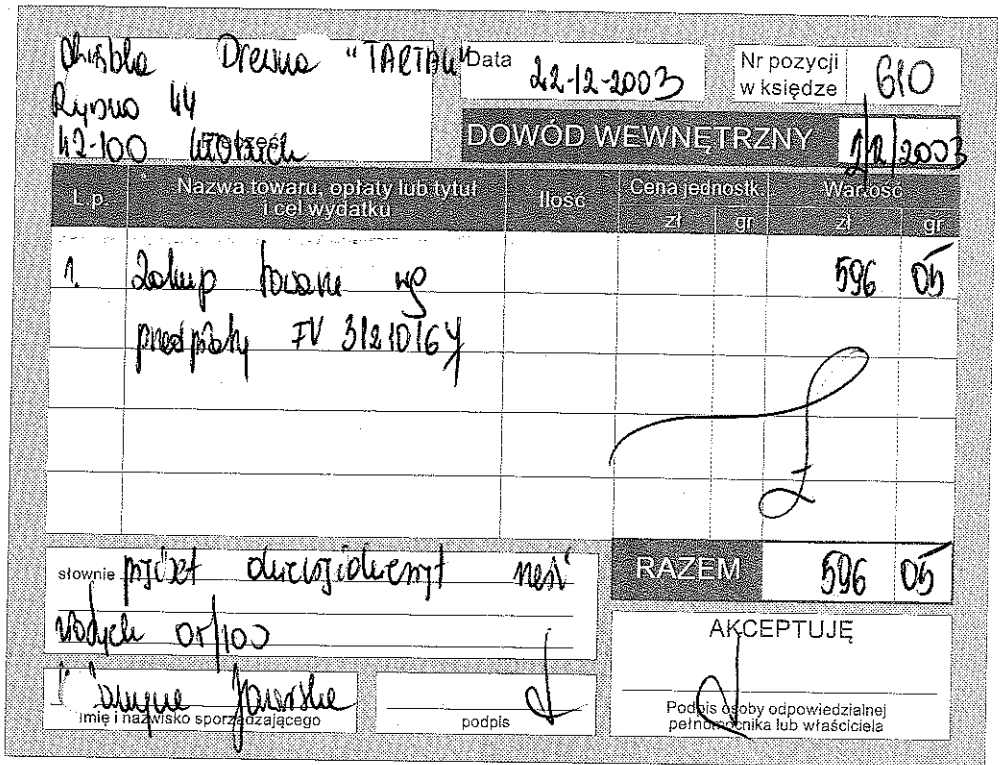 Drewna "TARTAK"
Data 22-12-2003
Nr pozycji w księdze 610
Rybno 44
42-100 Kłobuck
DOWÓD WEWNĘTRZNY 1/12/2003
L.p. Nazwa towaru, opłaty lub tytuł i cel wydatku Ilość Cena jednostk. zł gr Wartość zł gr
1. Zakup towaru wg 596 05
przedpłaty FV
słownie pięćset dziewięćdziesiąt sześć
złotych 05/100
RAZEM 596 05
AKCEPTUJĘ
Jaworska
Imię i nazwisko sporządzającego
podpis
Podpis osoby odpowiedzialnej
pełnomocnika lub właściciela